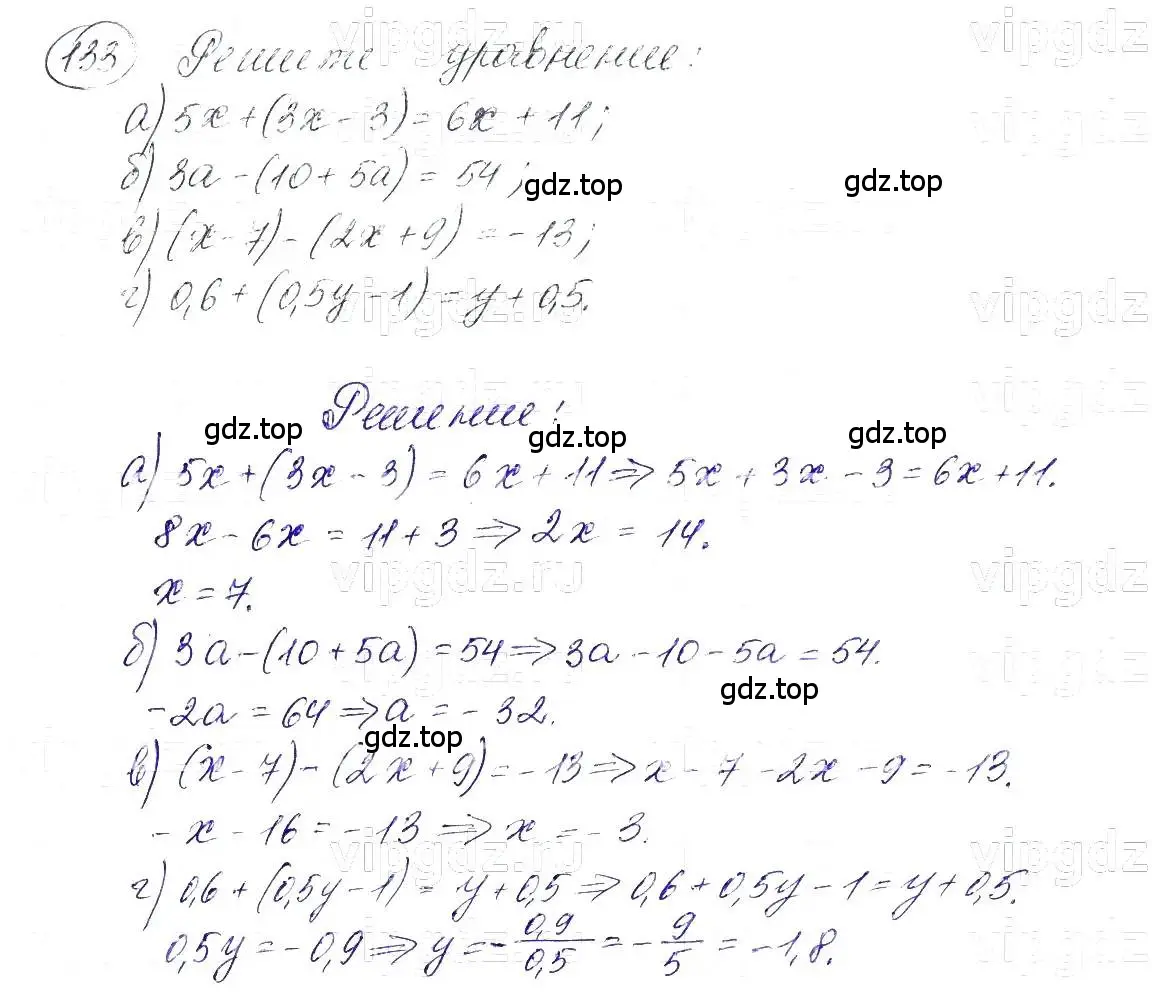 133 Решите уравнение:
а) 5x + (3x - 3) = 6x + 11;
б) 3a - (10 + 5a) = 54;
gdz.top
gdz.top
в) (x - 7) - (2x + 9) = -13;
г) 0,6 + (0,5y - 1) = y + 0,5.
vipgdz
Решение:
gdz.top
gdz.top
gdz.top
а) 5x + (3x - 3) = 6x + 11 => 5x + 3x - 3 = 6x + 11.
8x - 6x = 11 + 3 => 2x = 14.
vipgdz.ru
vipgdz
x = 7.
б) 3a - (10 + 5a) = 54 => 3a - 10 - 5a = 54.
gdz.top
-2a = 64 => a = -32.
gdz.top
в) (x - 7) - (2x + 9) = -13 => x - 7 - 2x - 9 = -13.
-x - 16 = -13 => x = -3.
vipgdz.ru
vipgdz
г) 0,6 + (0,5y - 1) = y + 0,5 => 0,6 + 0,5y - 1 = y + 0,5.
0,5y = -0,9 => y = -0,9/0,5 = -9/5 = -1,8.